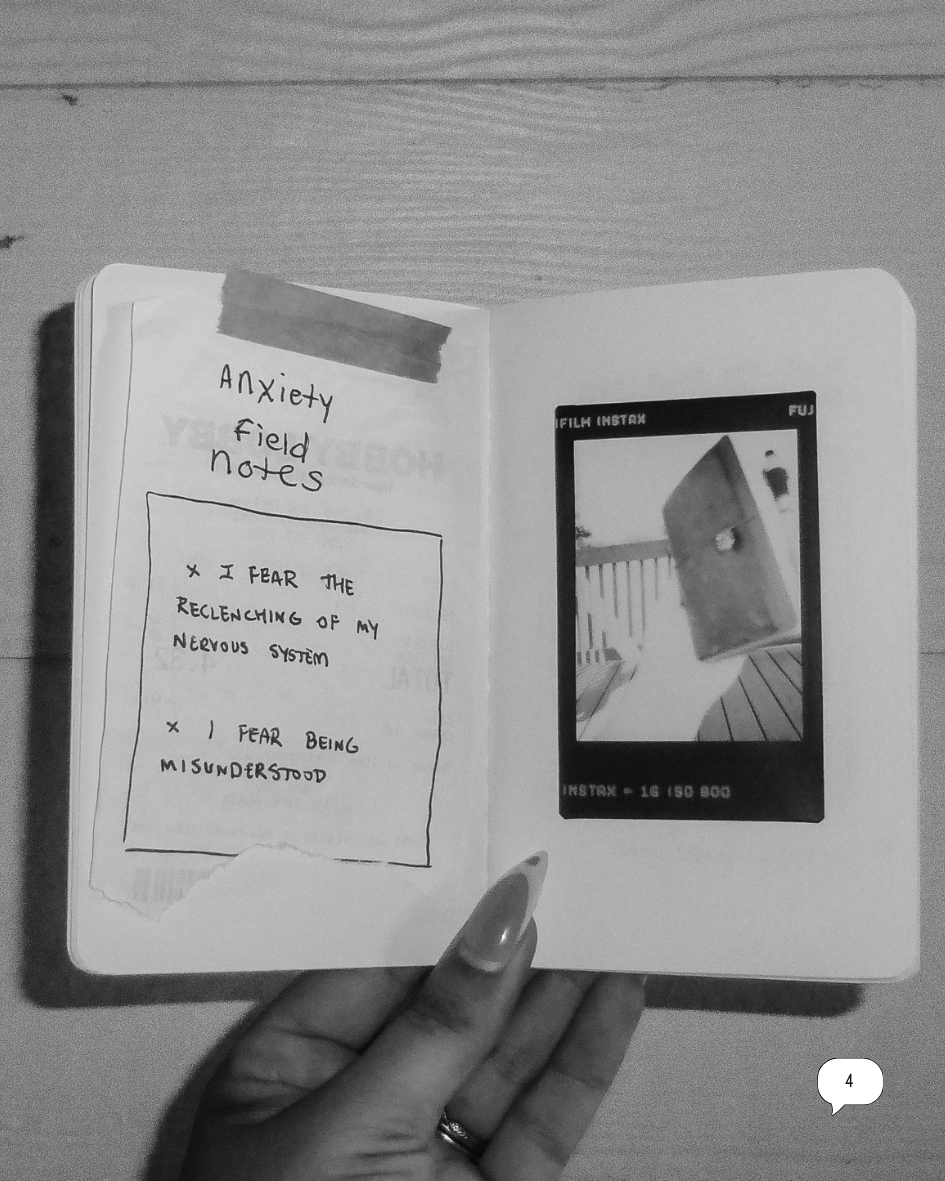 Anxiety
Field
notes
x I FEAR THE
RECLENCHING OF MY
NERVOUS SYSTEM
x I FEAR BEING
MISUNDERSTOOD
IFILM INSTAX FUJ
INSTAX - 16 ISO 800
4